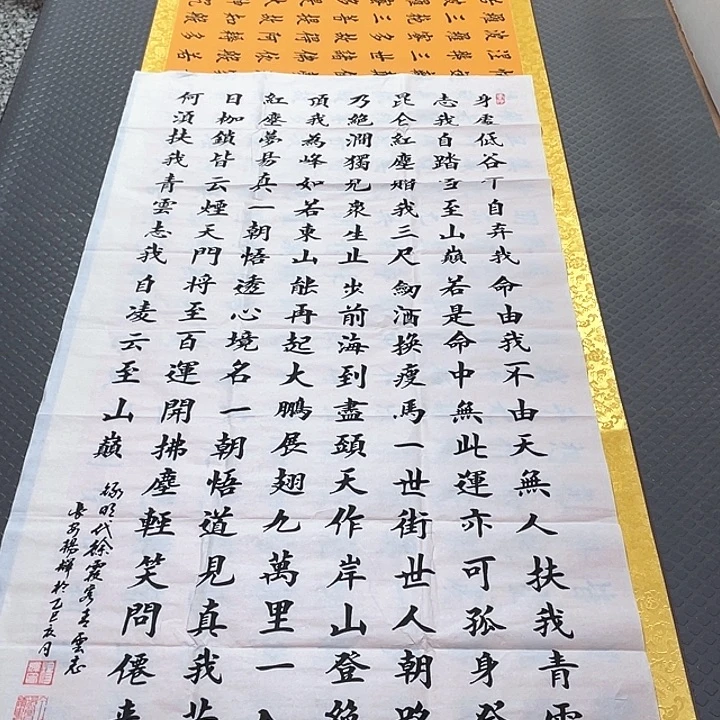 身處低谷丅自弃我命由我不由天無人扶我青雲
志我自踏雪至山巔若是命中無此運亦可孤身登
昆仑紅塵赠我三尺劒酒換瘦馬一世街世人朝路
乃絶澗獨見衆生止步前海到盡頭天作岸山登絶
頂我為峰如若東山能再起大鵬展翅九萬里一人
紅塵夢易真一朝悟透心境名一朝悟道見真我昔
日枷鎖皆云煙天門将至百運開拂塵輕笑問僊來
何湏扶我青雲志我自凌云至山巔
録明代徐霞客青雲志
長安楊輝於乙巳夏月